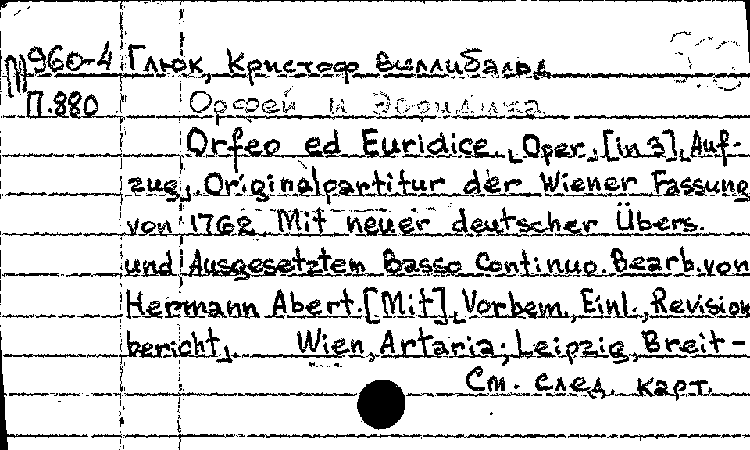 960-4 Глюк, Кристоф Виллибальд
П.880 Орфей и Эвридика
Orfeo ed Euridice. Oper. [In 3] Auf-
zug. Originalpartitur der Wiener Fassung
von 1762 Mit neuer deutscher Übers.
und Ausgesetztem Basso Continuo. Bearb. von
Hermann Abert. [Mit] Vorbem., Einl., Revision
bericht. Wien, Artaria; Leipzig, Breit-
См. след. карт.